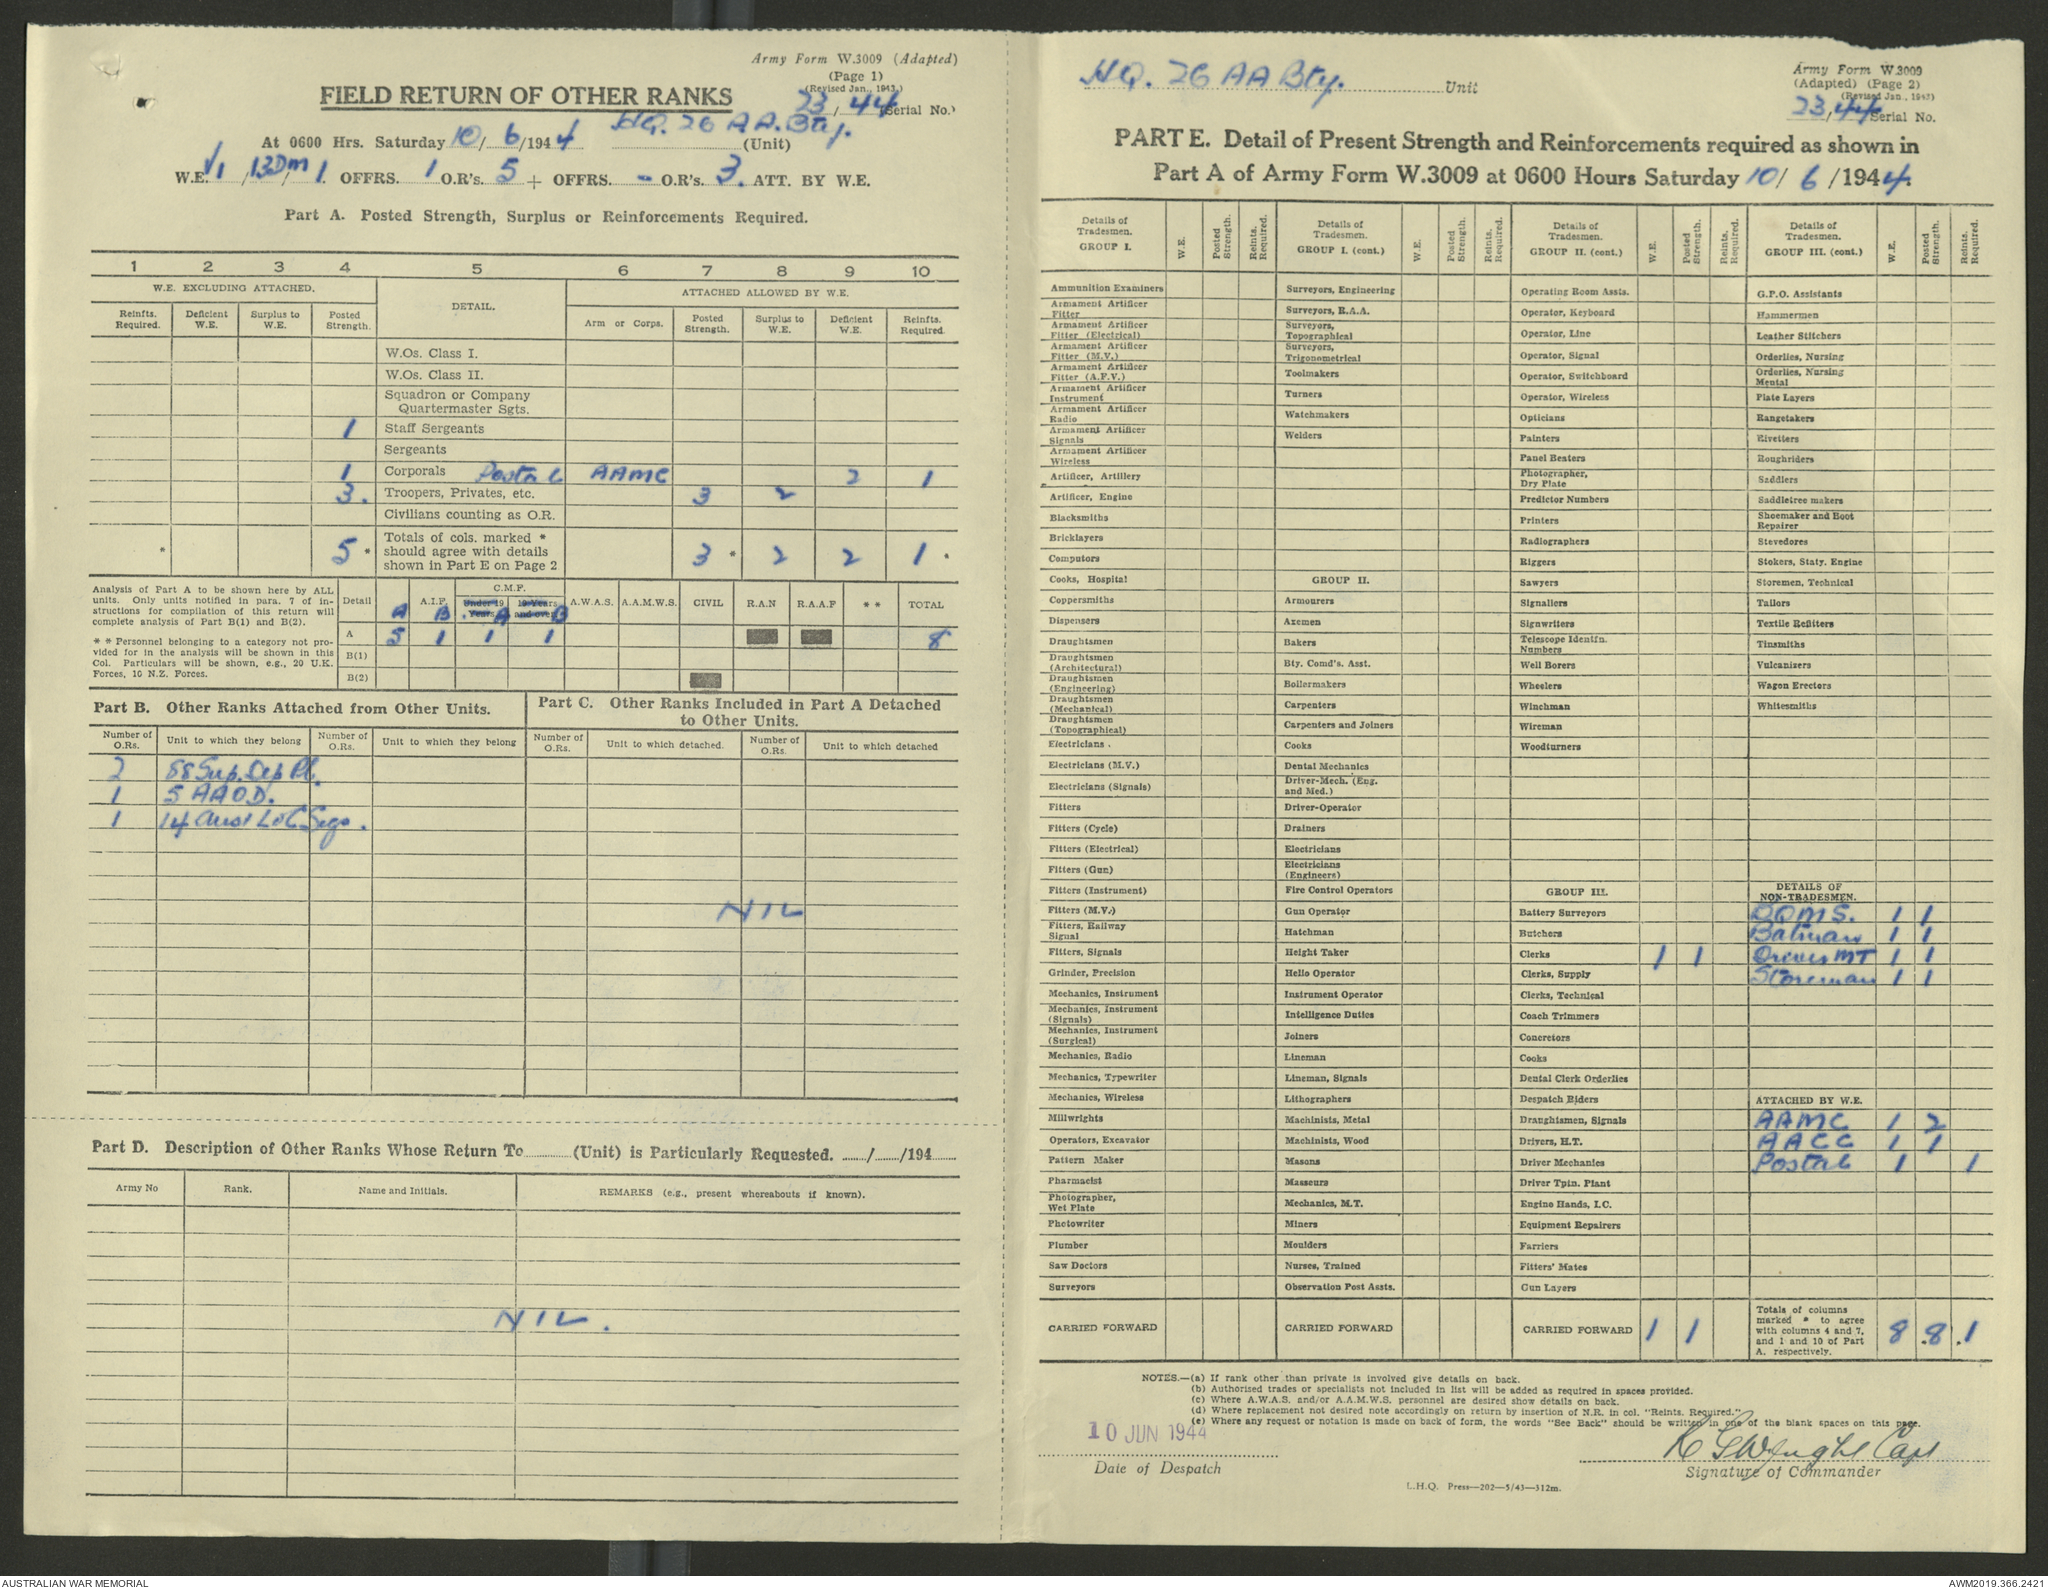 Army Form W.3009 (Adapted)
(Page 1)
(Revised Jan., 1943.)
FIELD RETURN OF OTHER RANKS
23/44 (Serial No.)
At 0600 Hrs. Saturday 10/6/1944 HQ. 26 AA. Bty. (Unit)
W.E. V1/13Dm/1. OFFRS. 1 O.R's. 5 + OFFRS. - O.R's. 3. ATT. BY W.E.
Part A. Posted Strength, Surplus or Reinforcements Required.
1 2 3 4 5 6 7 8 9 10
W.E. EXCLUDING ATTACHED. DETAIL. ATTACHED ALLOWED BY W.E.
Reinfts. Required. Deficient W.E. Surplus to W.E. Posted Strength. Arm or Corps. Posted Strength. Surplus to W.E. Deficient W.E. Reinfts. Required.
W.Os. Class I.
W.Os. Class II.
Squadron or Company
Quartermaster Sgts.
1 Staff Sergeants
Sergeants
1 Corporals Postal AAMC 2 1
3. Troopers, Privates, etc. 3 2
Civilians counting as O.R.
* 5 * Totals of cols. marked * should agree with details shown in Part E on Page 2 3 * 2 2 1 *
Analysis of Part A to be shown here by ALL
units. Only units notified in para. 7 of in-
structions for compilation of this return will
complete analysis of Part B(1) and B(2).
* * Personnel belonging to a category not pro-
vided for in the analysis will be shown in this
Col. Particulars will be shown, e.g., 20 U.K.
Forces, 10 N.Z. Forces.
Detail A.I.F. C.M.F. A.W.A.S. A.A.M.W.S. CIVIL R.A.N R.A.A.F * * TOTAL
Under 19 Years. 19 Years and over
A B A B
A 5 1 1 1 8
B(1)
B(2)
Part B. Other Ranks Attached from Other Units.
Number of O.Rs. Unit to which they belong Number of O.Rs. Unit to which they belong
2 88 Sup. Dep Pl.
1 5 AAOD.
1 14 Aust L of C Sigs.
Part C. Other Ranks Included in Part A Detached
to Other Units.
Number of O.Rs. Unit to which detached. Number of O.Rs. Unit to which detached
NIL
Part D. Description of Other Ranks Whose Return To (Unit) is Particularly Requested. / /194
Army No Rank. Name and Initials. REMARKS (e.g., present whereabouts if known).
NIL.
HQ. 26 AA Bty. Unit
Army Form W.3009
(Adapted) (Page 2)
(Revised Jan., 1943)
23/44 Serial No.
PART E. Detail of Present Strength and Reinforcements required as shown in
Part A of Army Form W.3009 at 0600 Hours Saturday 10/6/1944.
Details of Tradesmen. GROUP I. W.E. Posted Strength. Reints. Required.
Ammunition Examiners
Armament Artificer Fitter
Armament Artificer Fitter (Electrical)
Armament Artificer Fitter (M.V.)
Armament Artificer Fitter (A.F.V.)
Armament Artificer Instrument
Armament Artificer Radio
Armament Artificer Signals
Armament Artificer Wireless
Artificer, Artillery
Artificer, Engine
Blacksmiths
Bricklayers
Computors
Cooks, Hospital
Coppersmiths
Dispensers
Draughtsmen
Draughtsmen (Architectural)
Draughtsmen (Engineering)
Draughtsmen (Mechanical)
Draughtsmen (Topographical)
Electricians
Electricians (M.V.)
Electricians (Signals)
Fitters
Fitters (Cycle)
Fitters (Electrical)
Fitters (Gun)
Fitters (Instrument)
Fitters (M.V.)
Fitters, Railway Signal
Fitters, Signals
Grinder, Precision
Mechanics, Instrument
Mechanics, Instrument (Signals)
Mechanics, Instrument (Surgical)
Mechanics, Radio
Mechanics, Typewriter
Mechanics, Wireless
Millwrights
Operators, Excavator
Pattern Maker
Pharmacist
Photographer, Wet Plate
Photowriter
Plumber
Saw Doctors
Surveyors
CARRIED FORWARD
Details of Tradesmen. GROUP I. (cont.) W.E. Posted Strength. Reints. Required.
Surveyors, Engineering
Surveyors, R.A.A.
Surveyors, Topographical
Surveyors, Trigonometrical
Toolmakers
Turners
Watchmakers
Welders
GROUP II.
Armourers
Axemen
Bakers
Bty. Comd's. Asst.
Boilermakers
Carpenters
Carpenters and Joiners
Cooks
Dental Mechanics
Driver-Mech. (Eng. and Med.)
Driver-Operator
Drainers
Electricians
Electricians (Engineers)
Fire Control Operators
Gun Operator
Hatchman
Height Taker
Helio Operator
Instrument Operator
Intelligence Duties
Joiners
Lineman
Lineman, Signals
Lithographers
Machinists, Metal
Machinists, Wood
Masons
Masseurs
Mechanics, M.T.
Miners
Moulders
Nurses, Trained
Observation Post Assts.
CARRIED FORWARD
Details of Tradesmen. GROUP II. (cont.) W.E. Posted Strength. Reints. Required.
Operating Room Assts.
Operator, Keyboard
Operator, Line
Operator, Signal
Operator, Switchboard
Operator, Wireless
Opticians
Painters
Panel Beaters
Photographer, Dry Plate
Predictor Numbers
Printers
Radiographers
Riggers
Sawyers
Signallers
Signwriters
Telescope Identfn. Numbers
Well Borers
Wheelers
Winchman
Wireman
Woodturners
GROUP III.
Battery Surveyors
Butchers
Clerks 1 1
Clerks, Supply
Clerks, Technical
Coach Trimmers
Concretors
Cooks
Dental Clerk Orderlies
Despatch Riders
Draughtsmen, Signals
Drivers, H.T.
Driver Mechanics
Driver Tptn. Plant
Engine Hands, I.C.
Equipment Repairers
Farriers
Fitters' Mates
Gun Layers
CARRIED FORWARD 1 1
Details of Tradesmen. GROUP III. (cont.) W.E. Posted Strength. Reints. Required.
G.P.O. Assistants
Hammermen
Leather Stitchers
Orderlies, Nursing
Orderlies, Nursing Mental
Plate Layers
Rangetakers
Rivetters
Roughriders
Saddlers
Saddletree makers
Shoemaker and Boot Repairer
Stevedores
Stokers, Staty. Engine
Storemen, Technical
Tailors
Textile Refitters
Tinsmiths
Vulcanizers
Wagon Erectors
Whitesmiths
DETAILS OF NON-TRADESMEN.
BQMS. 1 1
Batman 1 1
Driver MT 1 1
Storeman 1 1
ATTACHED BY W.E.
AAMC 1 2
AACC 1 1
Postal 1 1
Totals of columns marked * to agree with columns 4 and 7, and 1 and 10 of Part A. respectively. 8 .8 .1
NOTES.—(a) If rank other than private is involved give details on back.
(b) Authorised trades or specialists not included in list will be added as required in spaces provided.
(c) Where A.W.A.S. and/or A.A.M.W.S. personnel are desired show details on back.
(d) Where replacement not desired note accordingly on return by insertion of N.R. in col. "Reints. Required."
(e) Where any request or notation is made on back of form, the words "See Back" should be written in one of the blank spaces on this page.
10 JUN 1944
Date of Despatch
Capt
Signature of Commander
L.H.Q. Press—202—5/43—312m.
AUSTRALIAN WAR MEMORIAL
AWM2019.366.2421